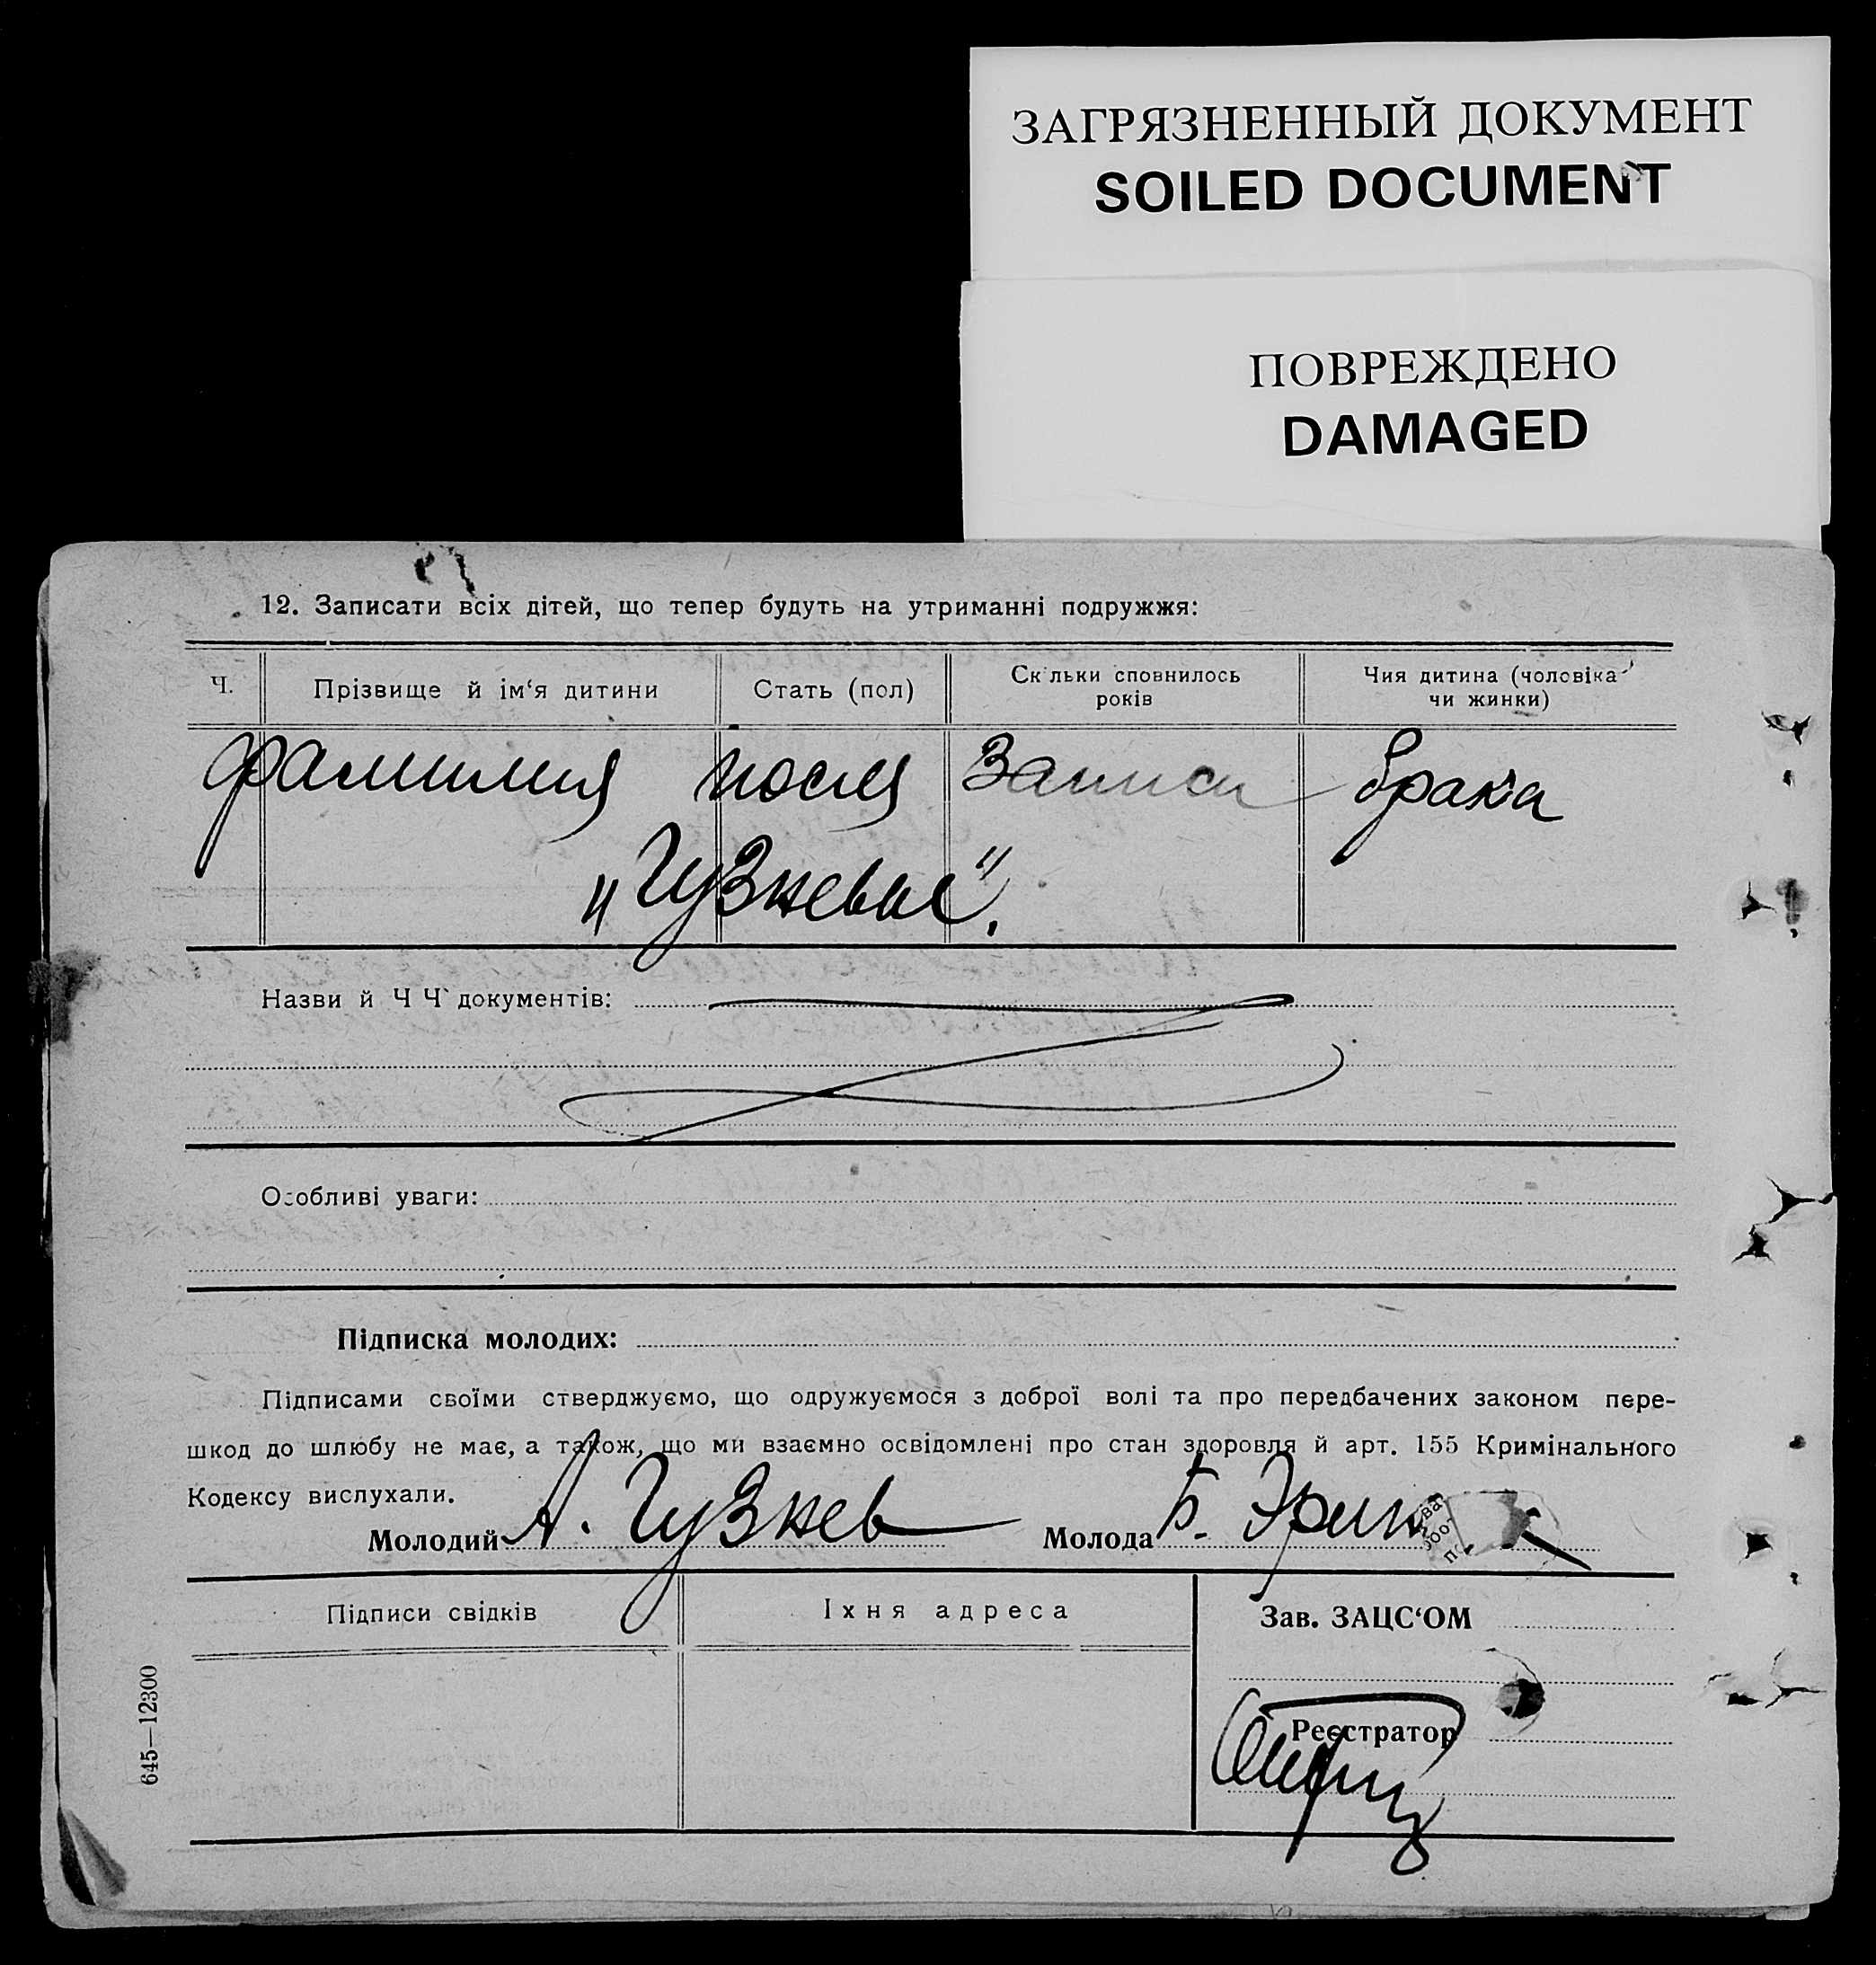 ЗАГРЯЗНЕННЫЙ ДОКУМЕНТ
SOILED DOCUMENT
ПОВРЕЖДЕНО
DAMAGED
12. Записати всіх дітей, що тепер будуть на утриманні подружжя:
Ч. Прізвище й ім‘я дитини Стать (пол) Скільки сповнилось років Чия дитина (чоловіка чи жинки)
фамилия после записи брака
„Гузневые“.
Назви й Ч Ч документів:
Особливі уваги:
Підписка молодих:
Підписами своїми стверджуємо, що одружуємося з доброї волі та про передбачених законом пере-
шкод до шлюбу не має, а також, що ми взаємно освідомлені про стан здоровля й арт. 155 Кримінального
Кодексу вислухали.
Молодий А. Гузнев Молода Б.
Підписи свідків Іхня адреса Зав. ЗАЦС‘ОМ
Реєстратор
645—12300